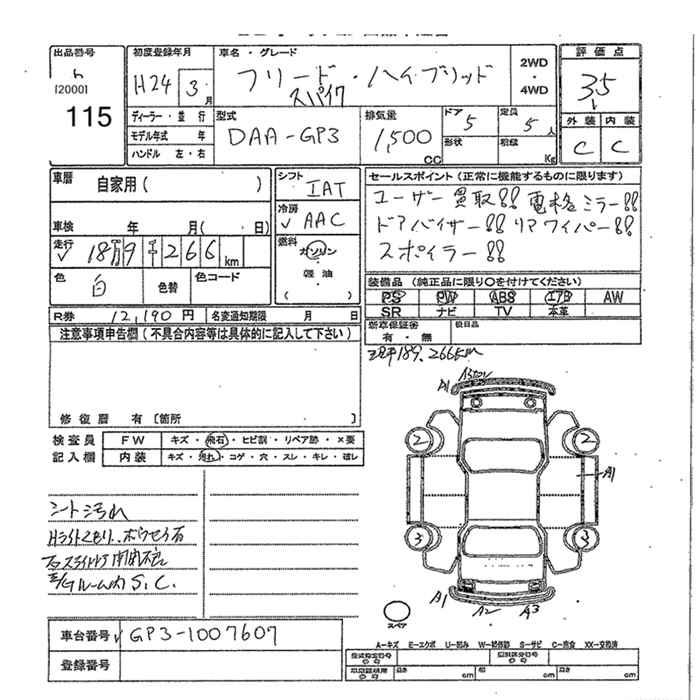 出品番号
[2000]
115
初度登録年月
H24 3 月
車名・グレード
フリード・ハイブリッド
スパイク
2WD
・
4WD
評価点
3.5
外装 内装
C C
ディーラー・並行
モデル年式 年
ハンドル 左・右
型式
DAA-GP3
排気量
1,500 CC
ドア 5
形状
定員 5 人
積載 Kg
車歴
自家用( )
車検 年 月( 日)
走行
18万9千266 km
色
白
色替
色コード
シフト
IAT
冷房
AAC
燃料
ガソリン
軽油
( )
セールスポイント(正常に機能するものに限ります)
ユーザー買取!! 電格ミラー!!
ドアバイザー!! リアワイパー!!
スポイラー!!
装備品(純正品に限り○を付けてください)
PS PW ABS エアB AW
SR ナビ TV 本革
R券 12,190円 名変通知期限 月 日
新車保証書
有・無
後日品
注意事項申告欄(不具合内容等は具体的に記入して下さい)
189,266km
修復歴 有 [箇所 ]
検査員
記入欄
FW キズ・飛石・ヒビ割・リペア跡・×要
内装 キズ・汚れ・コゲ・穴・スレ・キレ・破レ
A1
2 2
A1
3 3
A1 A2 A3
シート汚れ
Hライトくもり、ボウセイ石
右スライドドア開閉不良
ルーム内S.C.
スペア
車台番号 GP3-1007607
登録番号
A-キズ E-エクボ U-凹み W-補修跡 S-サビ C-腐食 XX-交換済
長さ cm 幅 cm 高さ cm